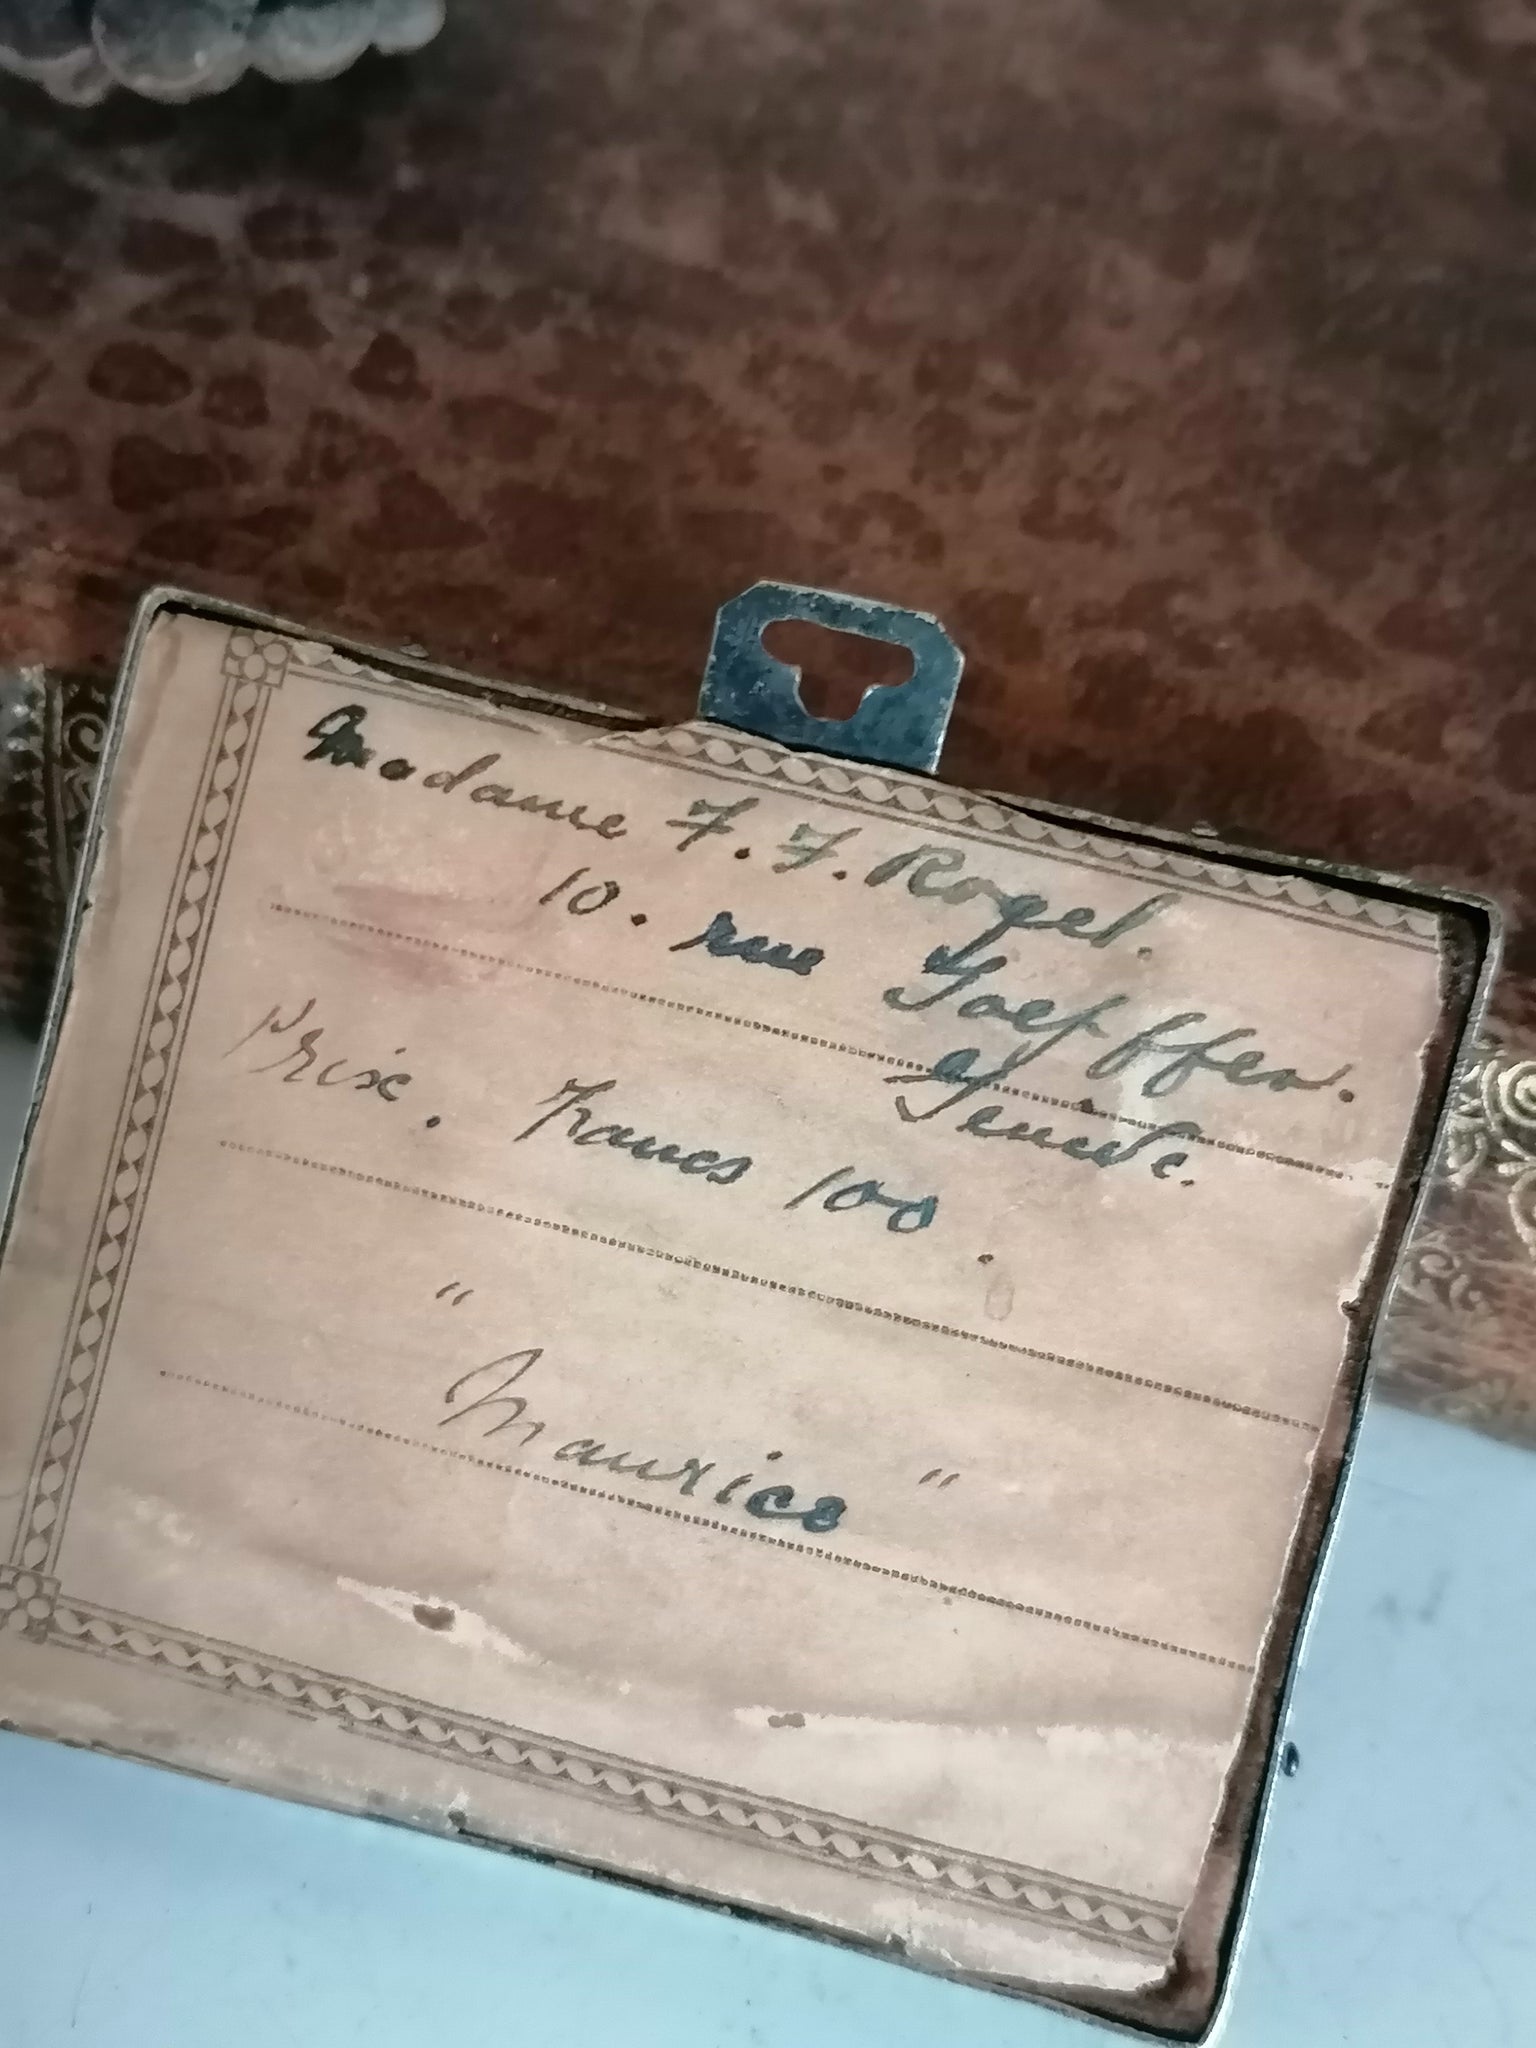 Madame F. F. Rogel.
10. rue Toepffer.
à Genève.
Prix. Francs 100.
"Maurice"